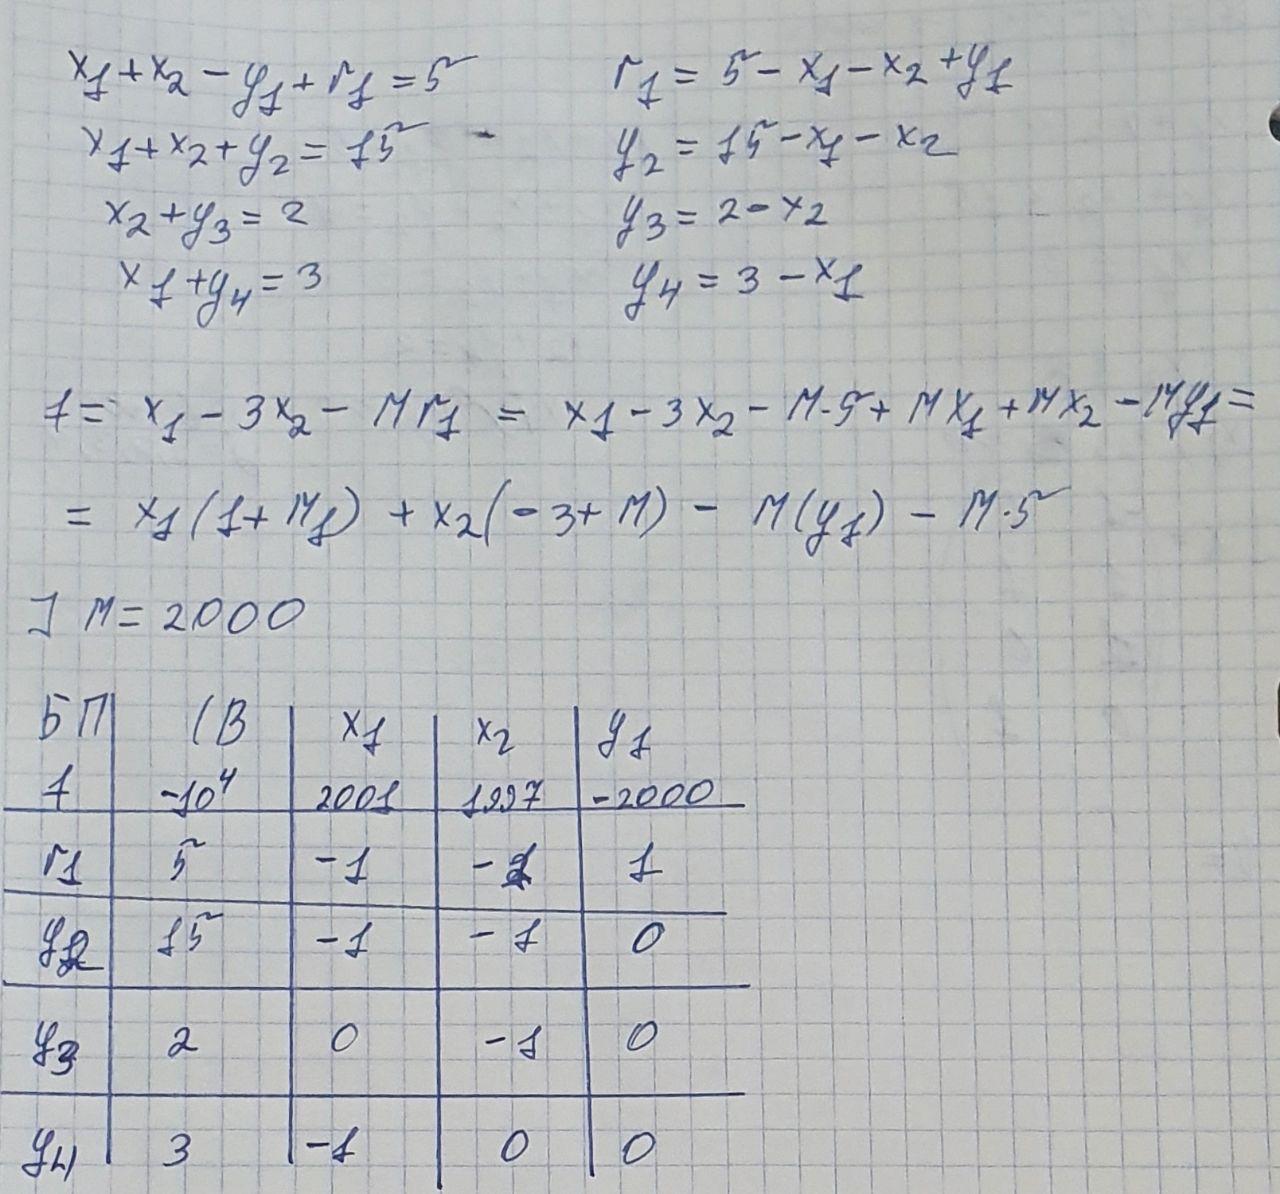 x1 + x2 - y1 + r1 = 5 r1 = 5 - x1 - x2 + y1
x1 + x2 + y2 = 15 - y2 = 15 - x1 - x2
x2 + y3 = 2 y3 = 2 - x2
x1 + y4 = 3 y4 = 3 - x1
f = x1 - 3x2 - Mr1 = x1 - 3x2 - M·5 + Mx1 + Mx2 - My1 =
= x1(1 + M1) + x2(-3 + M) - M(y1) - M·5
] M = 2000
БП СВ x1 x2 y1
f -10⁴ 2001 1997 -2000
r1 5 -1 -1 1
y2 15 -1 -1 0
y3 2 0 -1 0
y4 3 -1 0 0